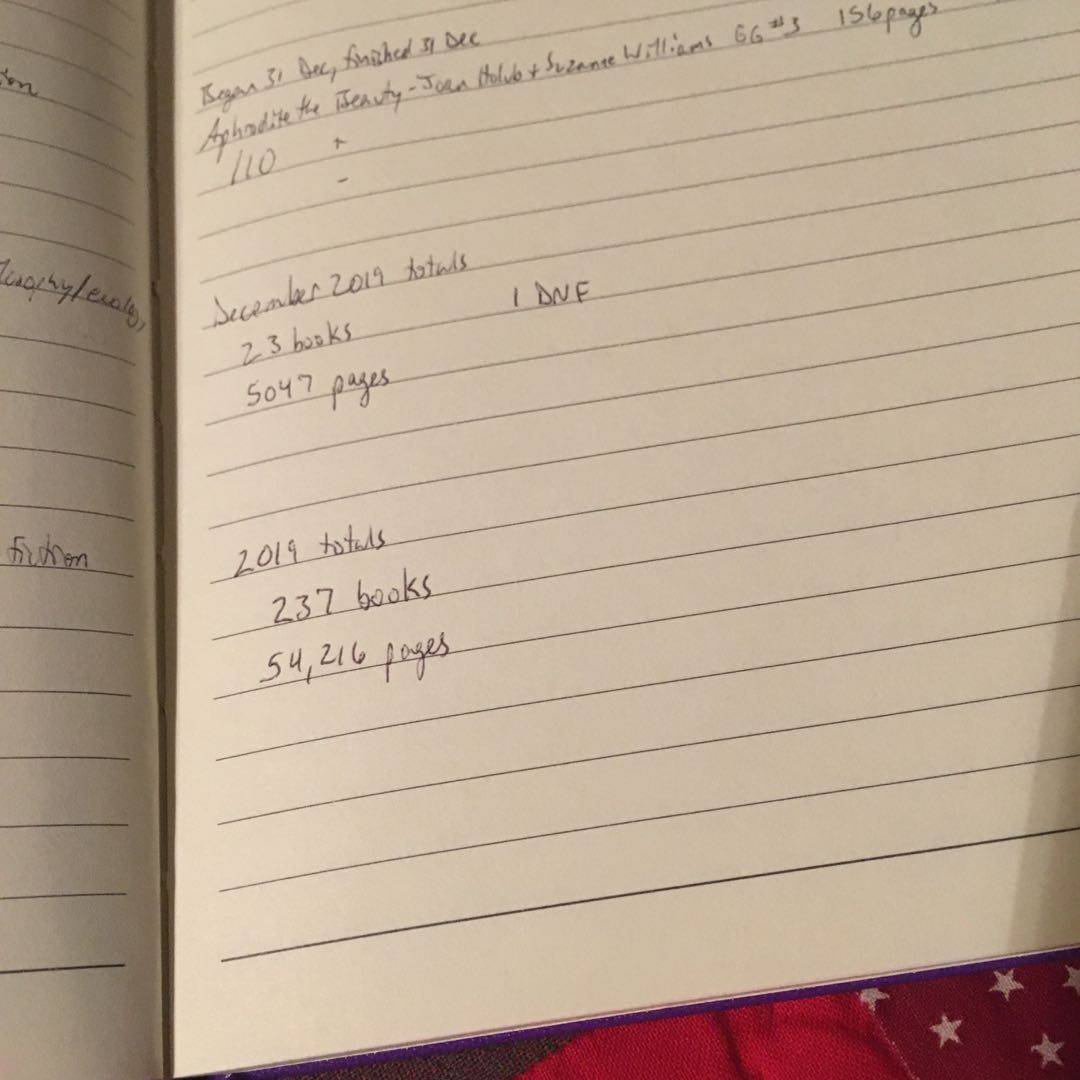 fiction
Began 31 Dec, finished 31 Dec
Aphrodite the Beauty - Joan Holub + Suzanne Williams GG #3 156 pages
/10 +
-
December 2019 totals
23 books 1 DNF
5047 pages
2019 totals
237 books
54,216 pages